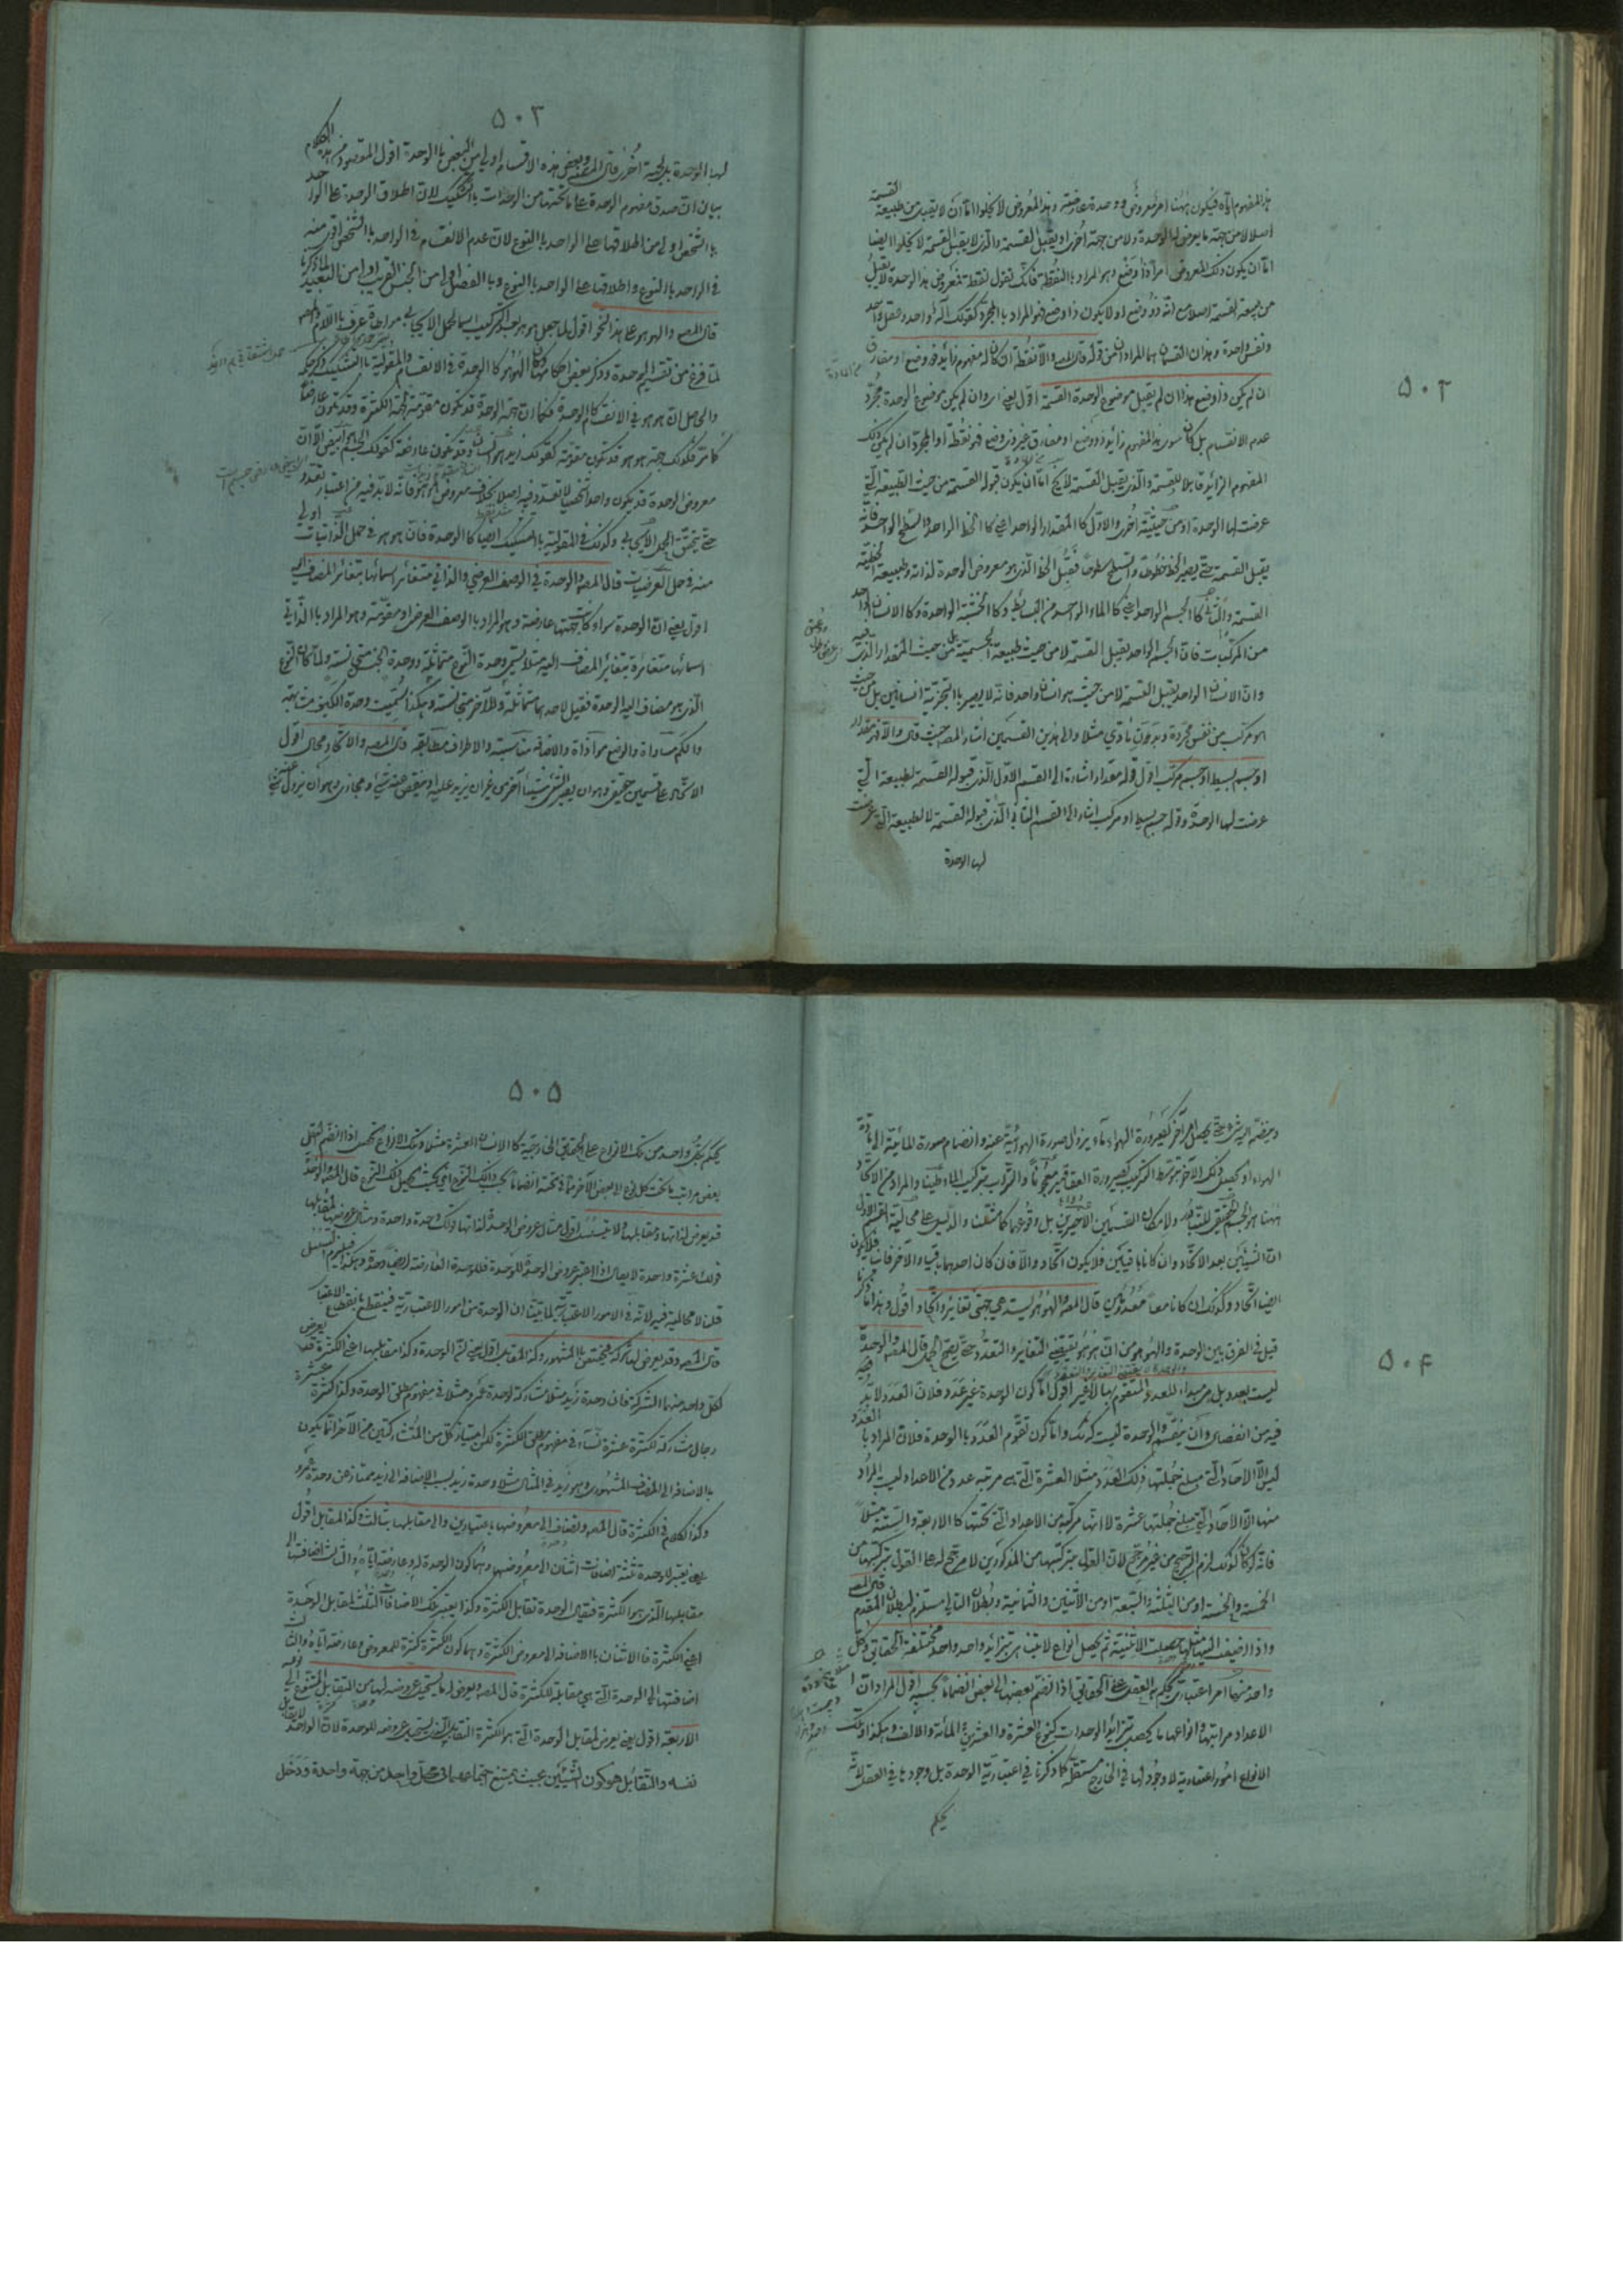 ٥٠٢
هذا المفهوم اياه فيكون ههنا امر معروض ووحدة عارضة وهذا المعروض لا يخلوا اما ان لا يقبل من طبيعة القسمة
اصلا لا من جهة ما يعرض له الوحدة ولا من جهة اخرى او يقبل القسمة والذي لا يقبل القسمة لا يخلوا ايضا
اما ان يكون ذلك المعروض امرا ذا وضع وهو المراد بالنقطة فانك تقول نقطة فمعروض هذا الوحدة لا يقبل
من جهة القسمة اصلا مع انه ذو وضع او لا يكون ذا وضع فهو المراد بالمجرد كقولك آله واحد وعقل واحد
ونفس واحدة وهذان القسمان هما المرادان من قوله قال المصه والا نقطة ان كان له مفهوم زائد ذو وضع او مفارق
ان لم يكن ذا وضع هذا ان لم يقبل موضوع الوحدة القسمة اقول يعني وان لم يكن موضوع الوحدة مجرد
عدم الانقسام بل كان سوى هذا المفهوم زايد ذو وضع او مفارق غير ذي وضع فهو نقطة او المجرد ان لم يكن ذلك
المفهوم الزائد قابلا للقسمة والذي يقبل القسمة لا يخ اما ان يكون قبوله القسمة من حيث الطبيعة التي
عرضت لها الوحدة او من حيثية اخرى والاول كالمقدار الواحد اعني كالخط الواحد والسطح الواحد فانه
يقبل القسمة حتى يصير الخط خطوطا والسطح سطوحا فقبل الخط الذي هو معروض الوحدة لذاته وطبيعة الخطية
القسمة والثاني كالجسم الواحد اعني كالماء الواحد من البسائط وكالخشبة الواحدة وكالانسان الواحد
من المركبات فان الجسم الواحد يقبل القسمة لا من حيث طبيعة الجسمية بل من حيث المقدار الذي فيه
وان الانسان الواحد يقبل القسمة لا من حيث هو انسان واحد فانه لا يصير بالتجزية انسانين بل من حيث
هو مركب من نفس مجردة وبدن مادي مثلا والى هذين القسمين اشار المصه حيث قال والا فهو مقدار
او جسم بسيط او جسم مركب اقول قوله مقدار اشارة الى القسم الاول الذي قبوله القسمة لطبيعة التي
عرضت لها الوحدة وقوله جسم بسيط او مركب اشار الى القسم الثاني الذي قبوله القسمة لا لطبيعة التي عرضت
لها الوحدة
٥٠٣
لها الوحدة بل لجهة اخرى قال المصه وبعض هذه الاقسام اولى من البعض بالوحدة اقول المقصود من هذا الكلام
بيان ان صدق مفهوم الوحدة على ما تحتها من الوحدات بالتشكيك لان اطلاق الوحدة على الواحد
بالشخص اولى من اطلاقها على الواحد بالنوع لان عدم الانقسام في الواحد بالشخص اقوى منه
في الواحد بالنوع واطلاقها على الواحد بالنوع وبالفصل اولى من الجنس القريب اولى من البعيد لما ذكرنا
قال المصه والهو هو على هذا النحو اقول لما جعل هو هو بعد التركيب اسما للحمل الايجابي مواطاة عرف باللام والمصه
لما فرغ من تقسيم الوحدة وذكر بعض احكامها كان الهو هو كالوحدة في الانقسام والمقولية بالتشكيك ذكر حكمه
والحاصل ان هو هو في الانقسام كالوحدة فكما ان جهة الوحدة قد تكون مقومة لجهة الكثرة وقد تكون عارضة
كما مر فكذلك جهة هو هو قد تكون مقومة كقولك زيد هو انسان وقد تكون عارضة كقولك الجسم هو ابيض الا ان
معروض الوحدة قد يكون واحدا شخصيا لا تعدد فيه اصلا بخلاف معروض الهو هو فانه لا بد فيه من اعتبار تعدد
حتى يتحقق الحمل الايجابي وكذلك في المقولية بالتشكيك ايضا كالوحدة فان هو هو في حمل الذاتيات اولى
منه في حمل العرضيات قال المصه والوحدة في الوصف العرضي والذاتي متغائر اسمائها بتغائر المضاف اليه
اقول يعني ان الوحدة سواء كانت جهتها عارضة وهو المراد بالوصف العرضي او مقومة وهو المراد بالذاتي
اسمائها متغائرة بتغائر المضاف اليه مثلا يسمى وحدة النوع مماثلة ووحدة الجنس مجانسة ولما كان النوع
الذي هو مضاف اليه الوحدة فقيل لاحدهما مماثلة وللآخر مجانسة وهكذا سميت وحدة الكيف مشابهة
والكم مساواة والوضع موازاة والاضافة مناسبة والاطراف مطابقة قال المصه والاتحاد محال اقول
الاتحاد على قسمين حقيقي وهو ان يصير الشئ شيئا آخر من غير ان يزيد عليه او ينقص عنه شئ ومجازي وهو ان يزول عنه شئ
٥٠٤
وينضم اليه شئ حتى يحصل امر آخر كصيرورة الهواء ماء بزوال صورة الهوائية عنه وانضمام صورة المائية الى مادة
الهواء او يحصل ذلك الآخر بتوسط التركيب كصيرورة العقاقير معجونا والتراب بتركيب الماء طينا والمراد من الاتحاد
ههنا هو الحقيقي لامكان القسمين الاخيرين بل وقوعهما كما مثلنا والدليل على محالية القسم الاول
ان الشيئين بعد الاتحاد ان كانا باقيين فلا يكون اتحاد والا فان كان احدهما باقيا والآخر فانيا فلا يكون
ايضا اتحاد وكذلك ان كانا معا معدومين قال المصه والهو هو يستدعي جهتي تغائر واتحاد اقول وهذا ما ذكرنا
قيل في الفرق بين الوحدة والهو هو من ان هو هو يقتضي التغاير والتعدد حتى يصح الحمل قال المصه والوحدة
ليست بعدد بل هي مبداء للعدد المتقوم بها لا غير اقول اما كون الوحدة غير عدد فلان العدد لا بد
فيه من انفصال وان ينقسم والوحدة ليست كذلك واما كون تقوم العدد بالوحدة فلان المراد بالعدد
ليس الا الآحاد التي مبلغ جملتها ذلك العدد مثلا العشرة التي هي مرتبة عدد من الاعداد ليست المراد
منها الا الآحاد التي مبلغ جملتها عشرة لا انها مركبة من الاعداد التي تحتها كالاربعة والستة مثلا
فانه لو كان كذلك لزم الترجيح من غير مرجح لان القول بتركبها من المذكورين لا مرجح له على القول بتركبها من
الخمسة والخمسة او من الثلثة والسبعة او من الاثنين والثمانية وبطلان التالي مستلزم لبطلان المقدم قال المصه
واذا اضيف اليها مثلها حصلت الاثنينية ثم يحصل انواع لا تتناهى بتزائد واحد واحد مختلفة الحقائق وكل
واحد منها امر اعتباري يحكم به العقل على الحقائق اذا انضم بعضها الى بعض انضماما بحسبه اقول المراد ان
الاعداد مراتبها وانواعها ما يحصل بتزائد الوحدات كنوع العشرة والعشرين والمائة والالف وهكذا وتلك
الانواع امور اعتبارية لا وجود لها في الخارج مستقلة كما ذكرنا في اعتبارية الوحدة بل وجودها في العقل لانه
يحكم
٥٠٥
يحكم بكل واحد من تلك الانواع على الحقائق الخارجية كالانسان العشرة مثلا وتلك الانواع تحصل اذا انضم
بعض مراتب ما تحت كل نوع الى بعض الآخر مما تحته انضماما بحسب ذلك النوع اعني بحيث يحصل ذلك النوع قال المصه والوحدة
قد تعرض لذاتها ومقابلها اقول مثال عروض الوحدة لذاتها قولك وحدة واحدة ومثال عروضها لمقابلها
قولك عشرة واحدة لا يقال اذا اعتبر عروض الوحدة للوحدة فللوحدة العارضة ايضا وحدة وهكذا فيلزم التسلسل
قلنا لا محالية فيه لانه في الامور الاعتبارية لما بينا ان الوحدة من امور الاعتبارية فينقطع بانقطاع الاعتبار
قال المصه وقد يعرض لها شركة فيتخصص بالمشهوري وكذا المقابل اقول يعني ان الوحدة وكذا مقابلها اعني الكثرة قد يعرض
لكل واحد منهما الشركة فان وحدة زيد مثلا مشاركة لوحدة عمرو مثلا في مفهوم مطلق الوحدة وكذا كثرة عشرة
رجال مشاركة لكثرة عشرة نساء في مفهوم مطلق الكثرة لكن امتياز كل من المتشاركين من الآخر انما يكون
بالاضافة الى المضاف المشهوري وهو زيد في المثال مثلا وحدة زيد بسبب الاضافة الى زيد ممتاز عن وحدة عمرو
وكذا الكلام في الكثرة قال المصه وتضاف الى معروضها باعتبارين والى مقابلها بثالث وكذا المقابل اقول
يعني يعتبر للوحدة ثلثة اضافات اثنان الى معروضها وهما كون الوحدة له وعارضة اياه والثالث اضافتها الى
مقابلها الذي هو الكثرة فيقال الوحدة تقابل الكثرة وكذا يعتبر تلك الاضافات الثلث لمقابل الوحدة
اعني الكثرة فالاثنان بالاضافة الى معروض الكثرة وهما كون الكثرة كثرة للمعروض وعارضة اياه والثالث
اضافتها الى الوحدة التي هي مقابلة للكثرة قال المصه ويعرض له ما يستحيل عروضه لها من التقابل المتنوع الى
الاربعة اقول يعني يعرض لمقابل الوحدة التي هو الكثرة التقابل الذي يستحيل عروضه للوحدة لان الواحد لا يقابل
نفسه والتقابل هو كون الشيئين بحيث يمتنع اجتماعهما في محل واحد من جهة واحدة ودخل